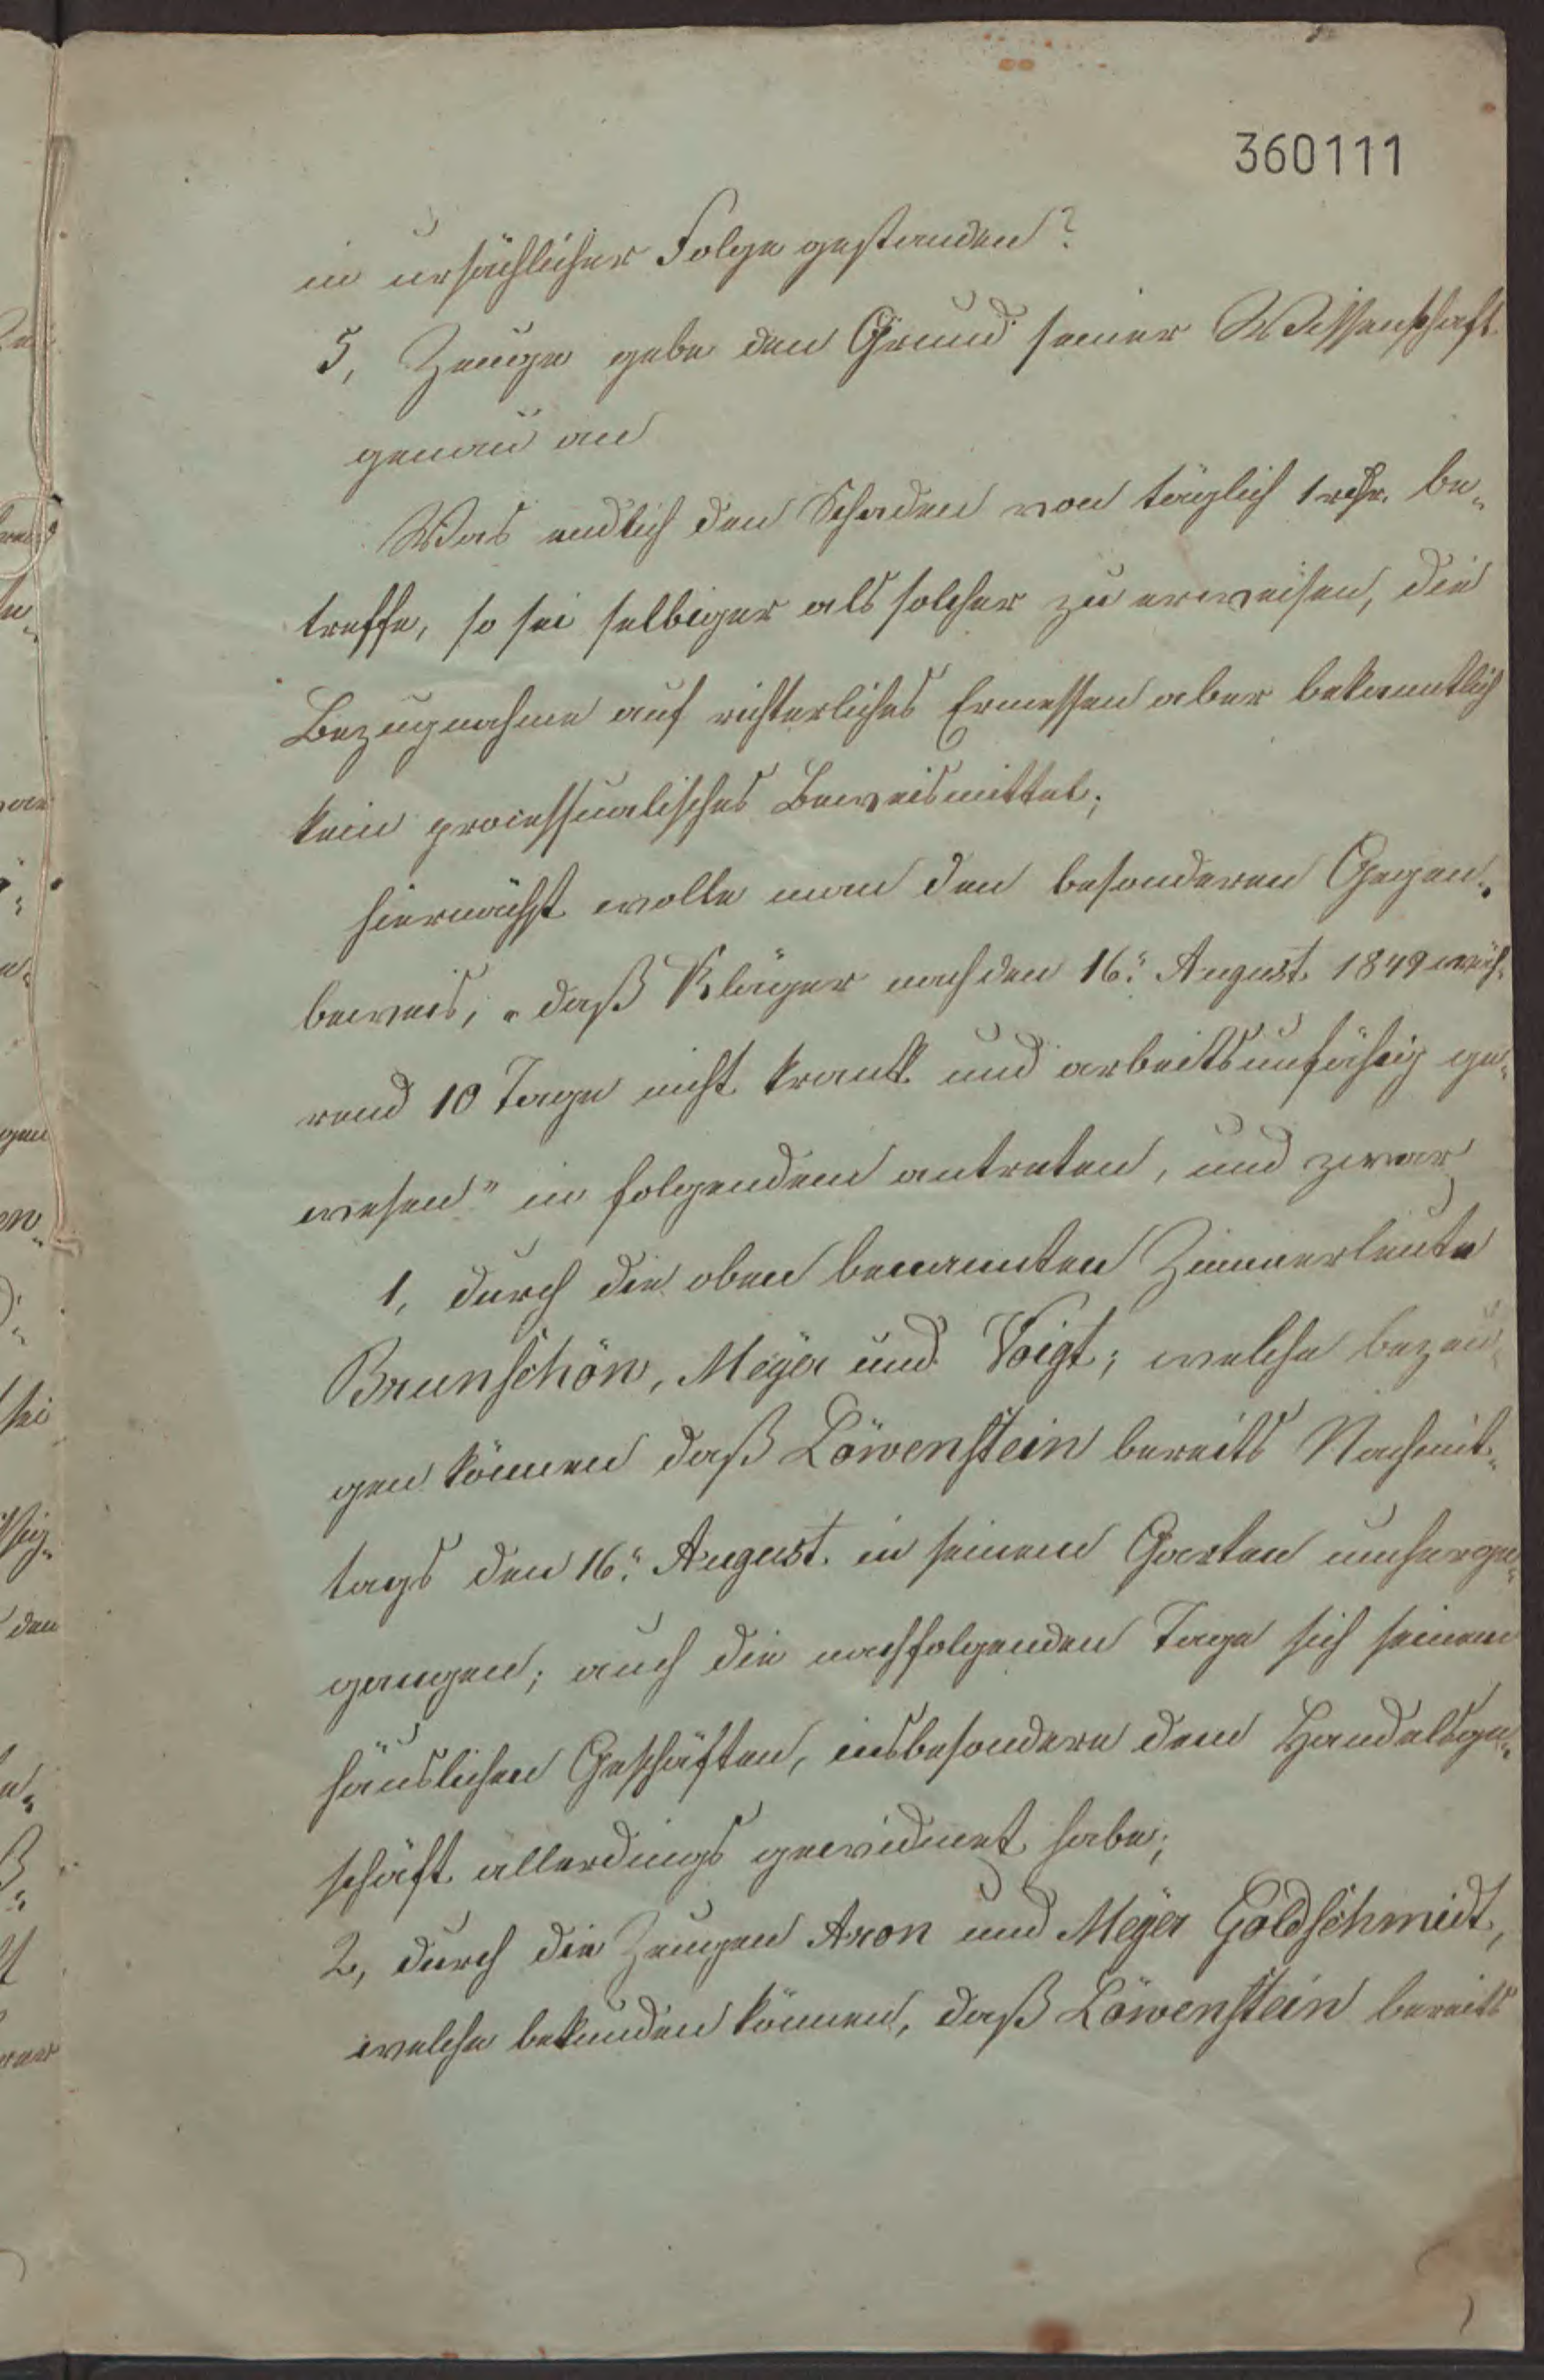 360111
in ursächlicher Folge gestanden?
5, Zeuge gebe den Grund seiner Wissenschaft
genau an
Was endlich den Schaden von täglich 1 rthr. be-
treffe, so sei selbiger als solcher zu erweisen, die
Bezugnahme auf richterliches Ermessen aber bekanntlich
kein processualisches Beweismittel;
hiernächst wolle man den besonderen Gegen-
beweis, „daß Kläger nach den 16. August 1849 wäh-
rend 10 Tage nicht krank und arbeitsunfähig ge-
wesen" in folgendem antreten, und zwar
1, durch die oben benannten Zimmerleute
Brunschön, Meyer und Voigt; welche bezeu-
gen können daß Löwenstein bereits Nachmit-
tags den 16. August in seinem Garten umherge-
gangen; auch die nachfolgenden Tage sich seinen
häuslichen Geschäften, insbesondere dem Handelsge-
schäft allerdings gewidmet habe;
2, durch die Zeugen Aron und Meyer Goldschmidt,
welche bekunden können, daß Löwenstein bereits